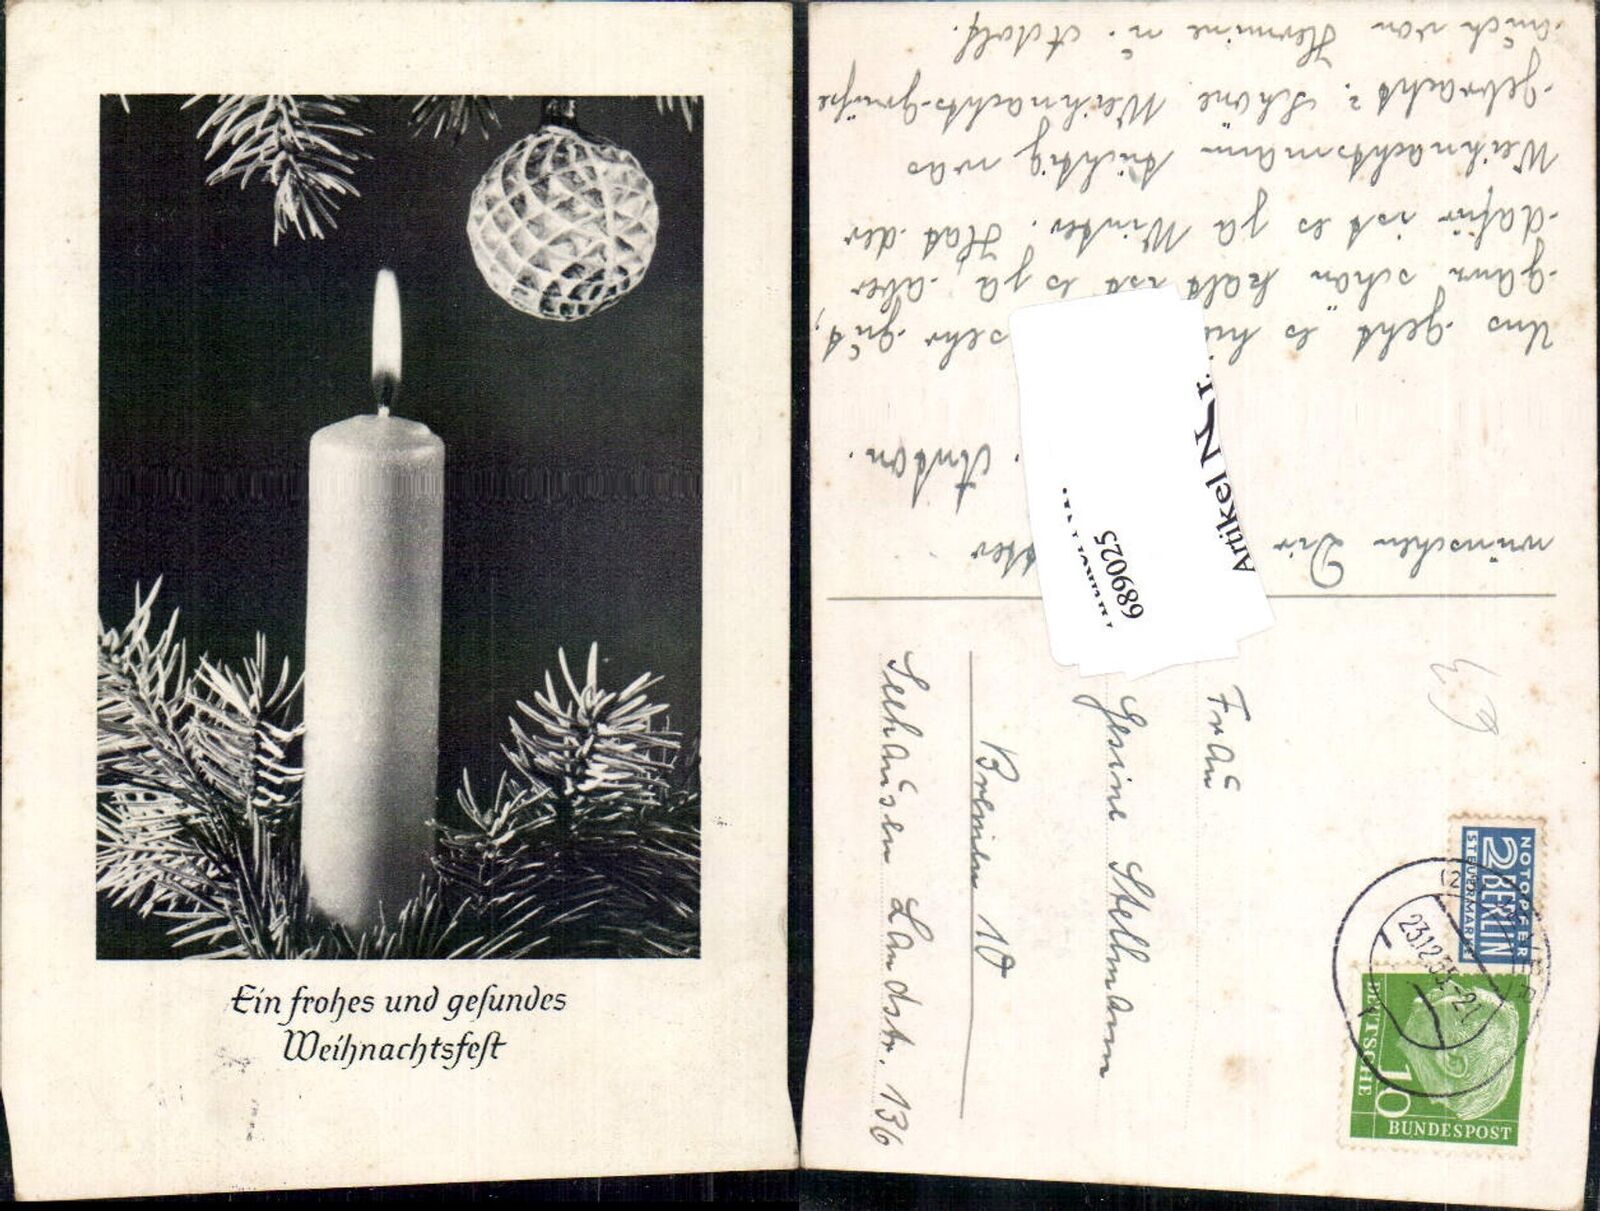 Ein frohes und gesundes
Weihnachtsfest
wünschen Dir
Anton.
Uns geht es sehr gut,
ganz schön kalt ist es ja aber
dafür ist es ja Winter. Hat der
Weihnachtsmann tüchtig was
gebracht? Schöne Weihnachts-Grüße
auch von Hermine u. Adolf.
Artikel N r.
689025
Frau
Gesine Stellmann
Bremen 10
Seehausen Landstr. 136
NOTOPFER
2 BERLIN
STEUERMARKE
23.12.55.-21
DEUTSCHE
10
BUNDESPOST